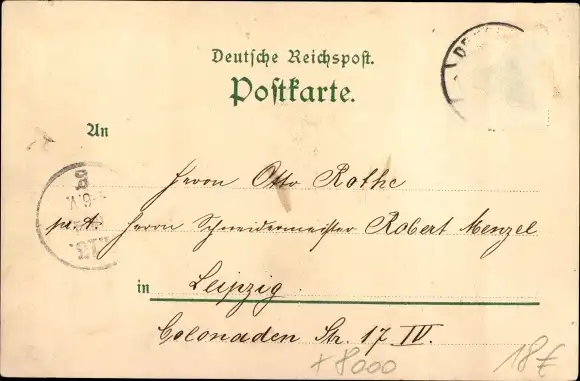 Deutsche Reichspost.
Postkarte.
An
Herrn Otto Rothe
pr. A. Herrn Schneidermeister Robert Menzel
in Leipzig.
Colonaden Str. 17 IV.
+8000
18€